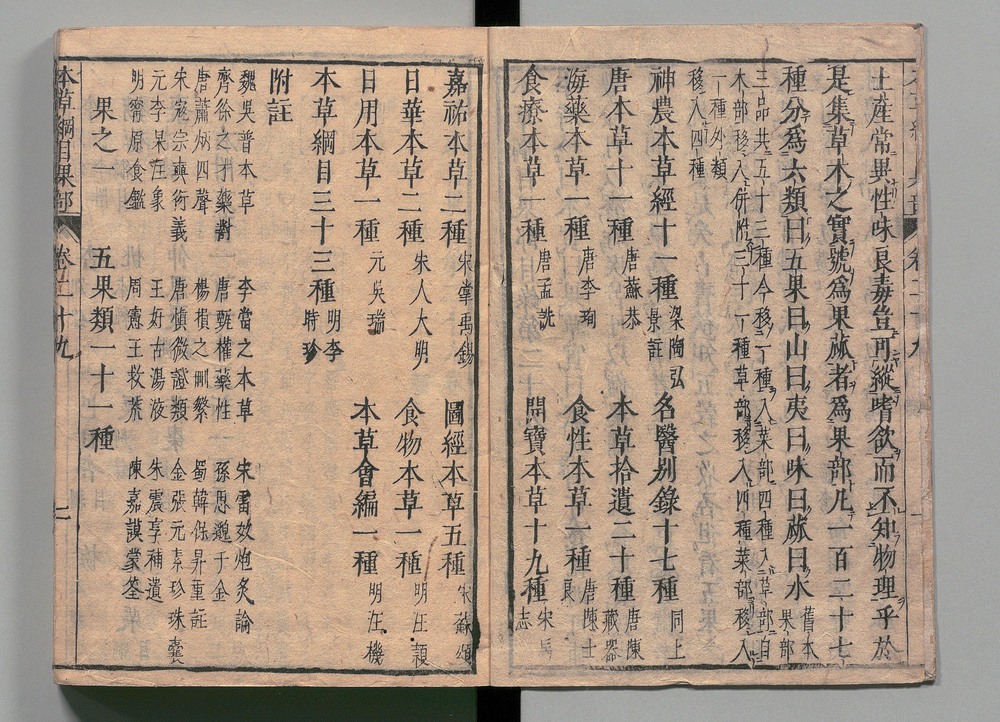 土產常異性味良毒豈可縱嗜欲而不知物理乎於
是集草木之實號爲果蓏者爲果部凡一百二十七
種分爲六類曰五果曰山曰夷曰味曰蓏曰水
舊本
果部
三品共五十三種今移一種入菜部四種入草部自
木部移入併附三十一種草部移入四種菜部移入
一種外類
移入四種
神農本草經十一種 梁陶弘
景註
名醫別錄十七種 同上
唐本草十一種 唐蘇恭
本草拾遺二十種 唐陳
藏器
海藥本草一種 唐李珣
食性本草一種 唐陳士
良
食療本草一種 唐孟詵
開寶本草十九種 宋馬
志
嘉祐本草二種 宋掌禹錫
圖經本草五種 宋蘇頌
日華本草二種 宋人大明
食物本草一種 明汪穎
日用本草一種 元吳瑞
本草會編一種 明汪機
本草綱目三十三種 明李
時珍
附註
魏吳普本草 李當之本草 宋雷斅炮炙論
齊徐之才藥對 唐甄權藥性 孫思邈千金
唐蕭炳四聲 楊損之刪繁 蜀韓保昇重註
宋寇宗奭衍義 唐愼微證類 金張元素珍珠囊
元李杲法象 王好古湯液 朱震亨補遺
明甯原食鑑 周憲王救荒 陳嘉謨蒙筌
果之一 五果類一十一種
本草綱目果部 卷二十九 二